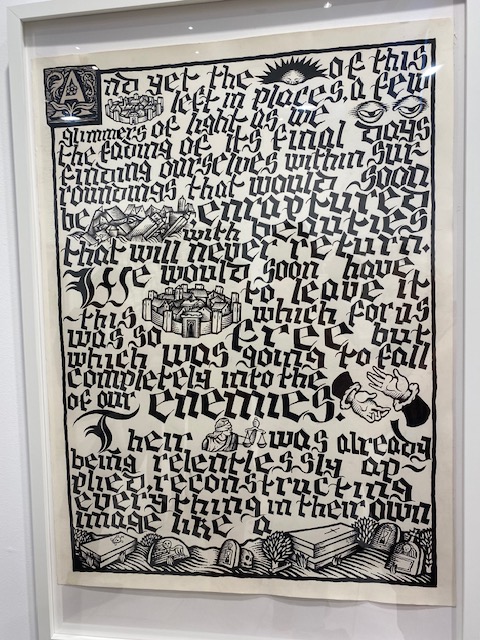 And yet the of this
left in places, a few
glimmers of light as we
the fading of its final days
finding ourselves within sur
roundings that would soon
be enraptured
with beauties
that will never return.
We would soon have
to leave it
this which for us
was so free but
which was going to fall
completely into the
of our enemies.
Their was already
being relentlessly ap-
plied, reconstructing
everything in their own
image like a